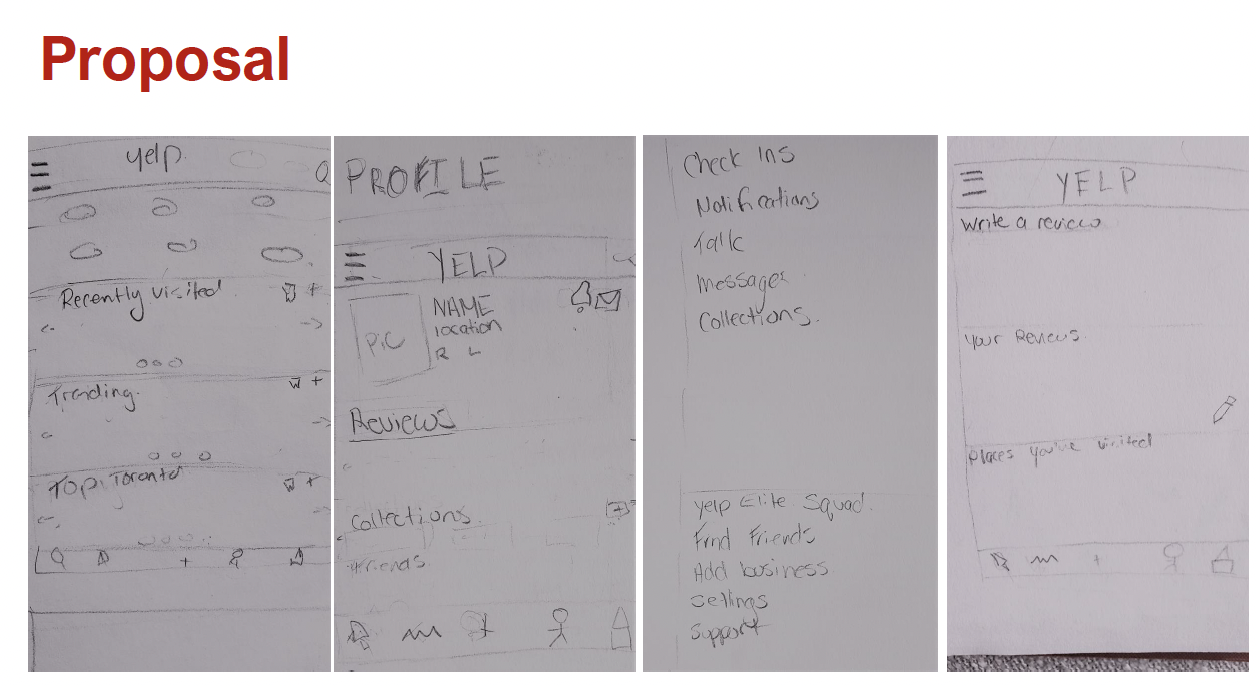 Proposal
yelp
Recently visited
Trending
Top Toronto
PROFILE
YELP
PIC
NAME
location
R L
Reviews
Collections
Friends
Check Ins
Notifications
Talk
Messages
Collections.
yelp Elite Squad.
Find Friends
Add business
Settings
Support
YELP
Write a review
Your Reviews
Places you've visited